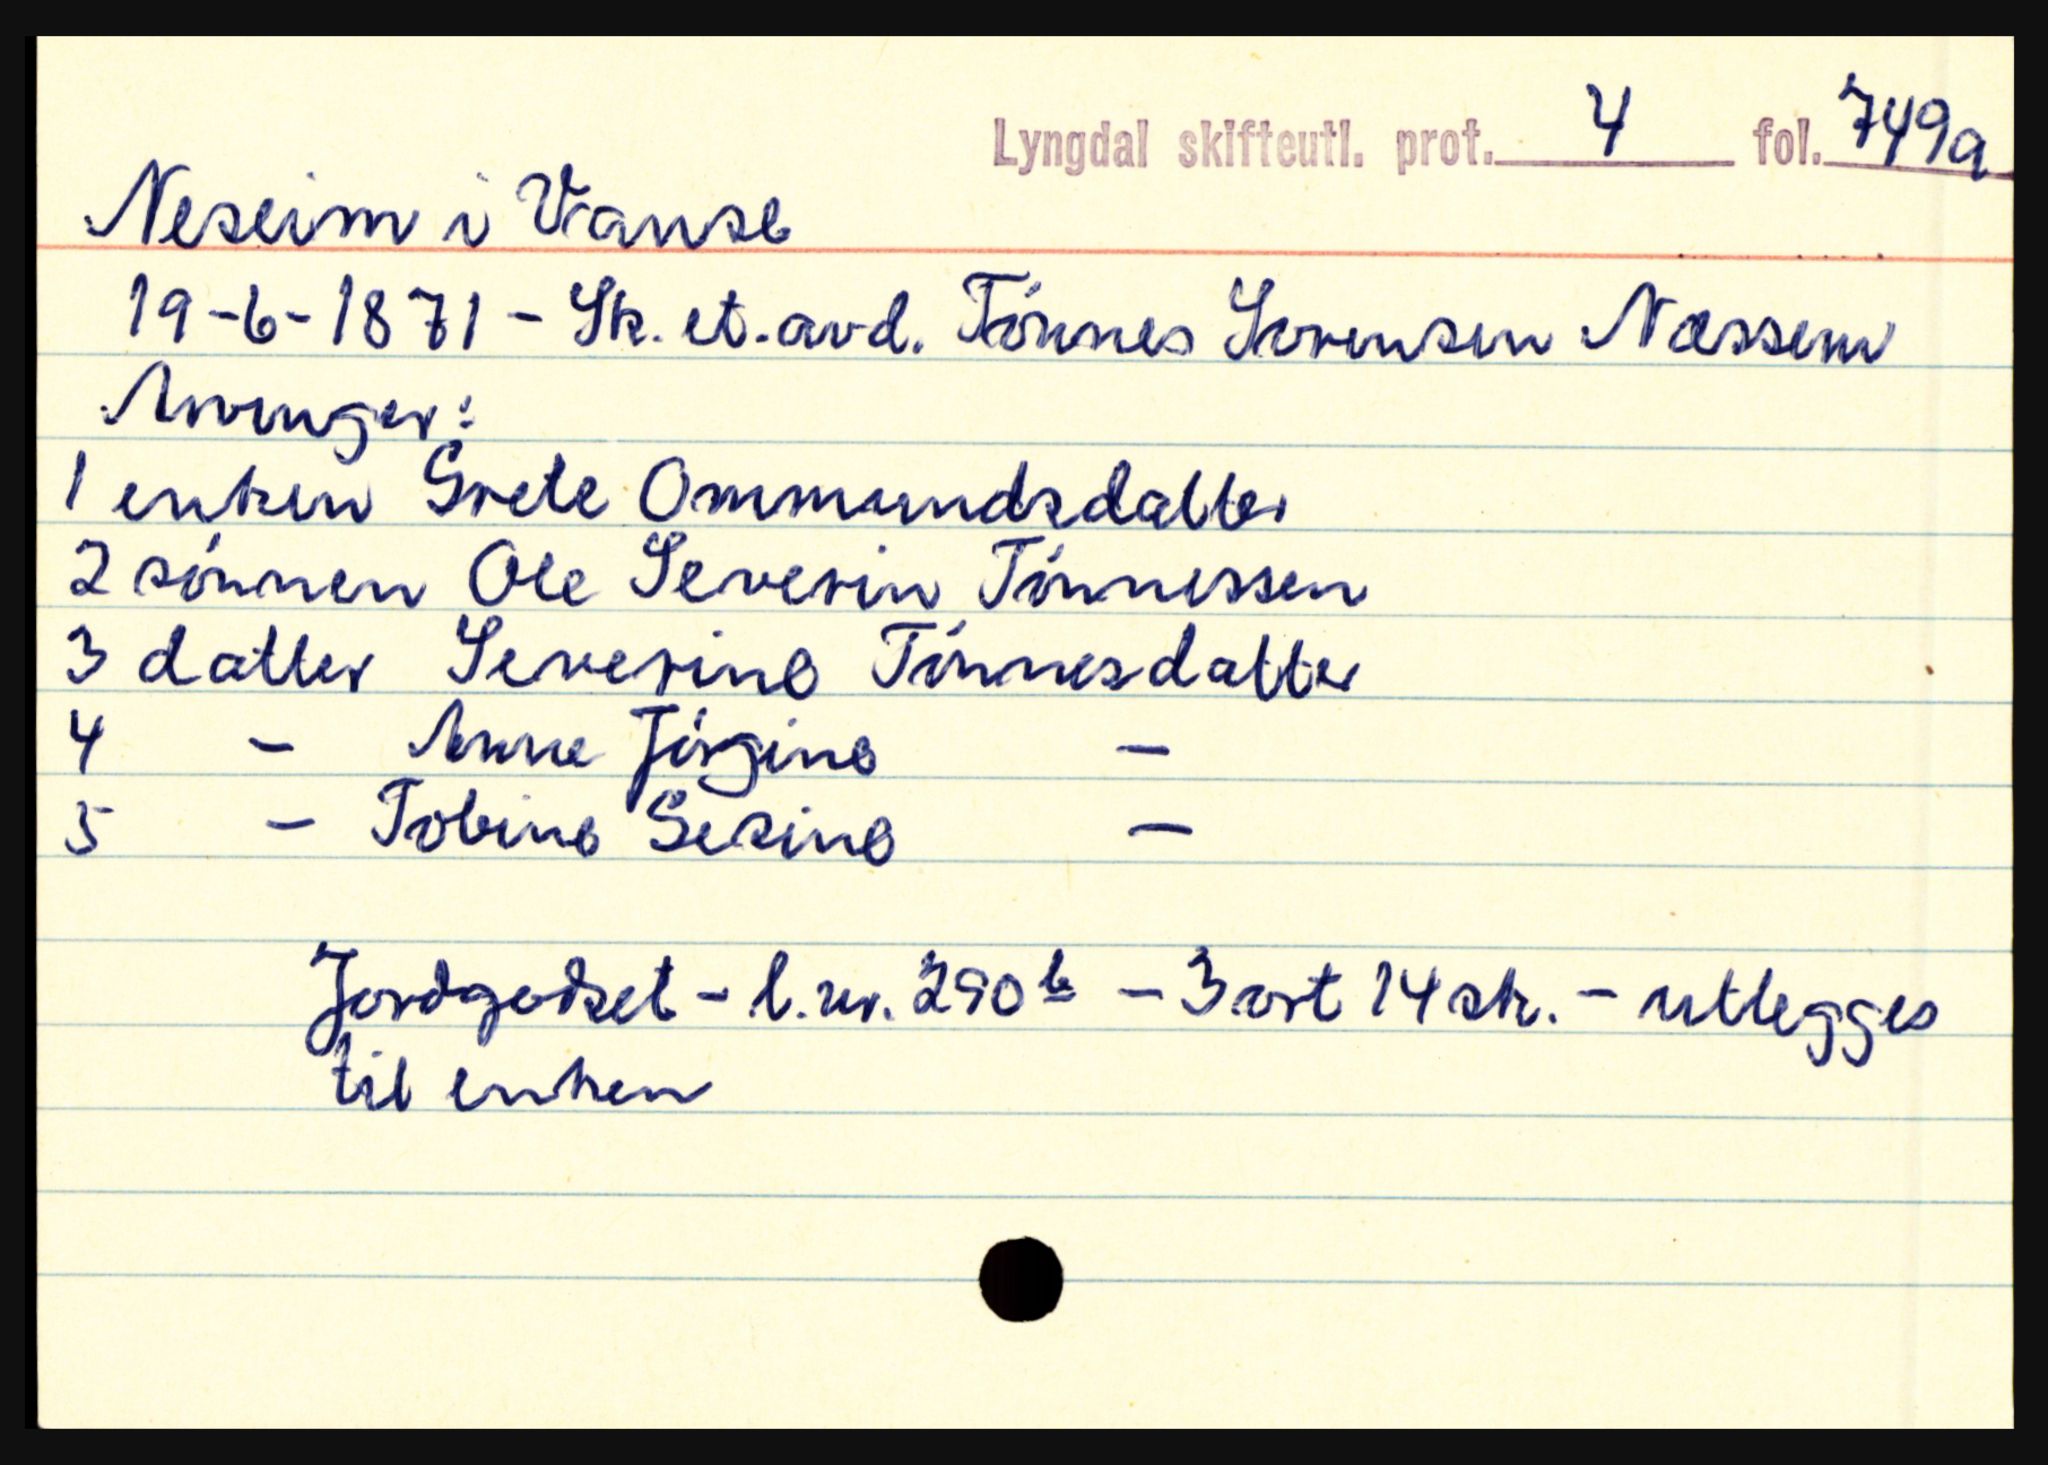 Lyngdal skifteutl. prot. 4 fol. 749a
Neseim i Vanse
19-6-1871 - Sk. et. avd. Tónnes Sorensen Næssem
Arvinger:
1 enken Grete Ommundsdatter
2 sónnen Ole Severin Tónnessen
3 datter Severine Tónnesdatter
4 - Anne Jórgine -
5 - Tobine Gesine -
Jordgodset - l.nr. 290b - 3 ort 14 sk. - utlegges
til enken